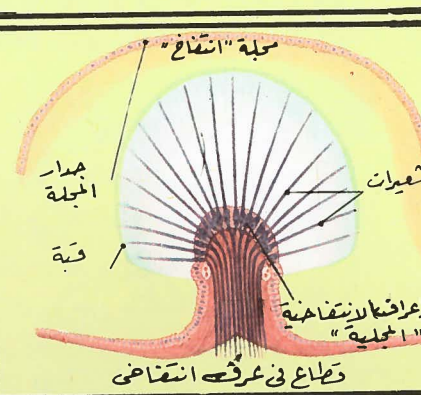 مجلة "انتفاخ"
جدار
المجلة
شعيرات
قبة
الانتفاخية
"المجلية"
قطاع فى عرف انتفاخى